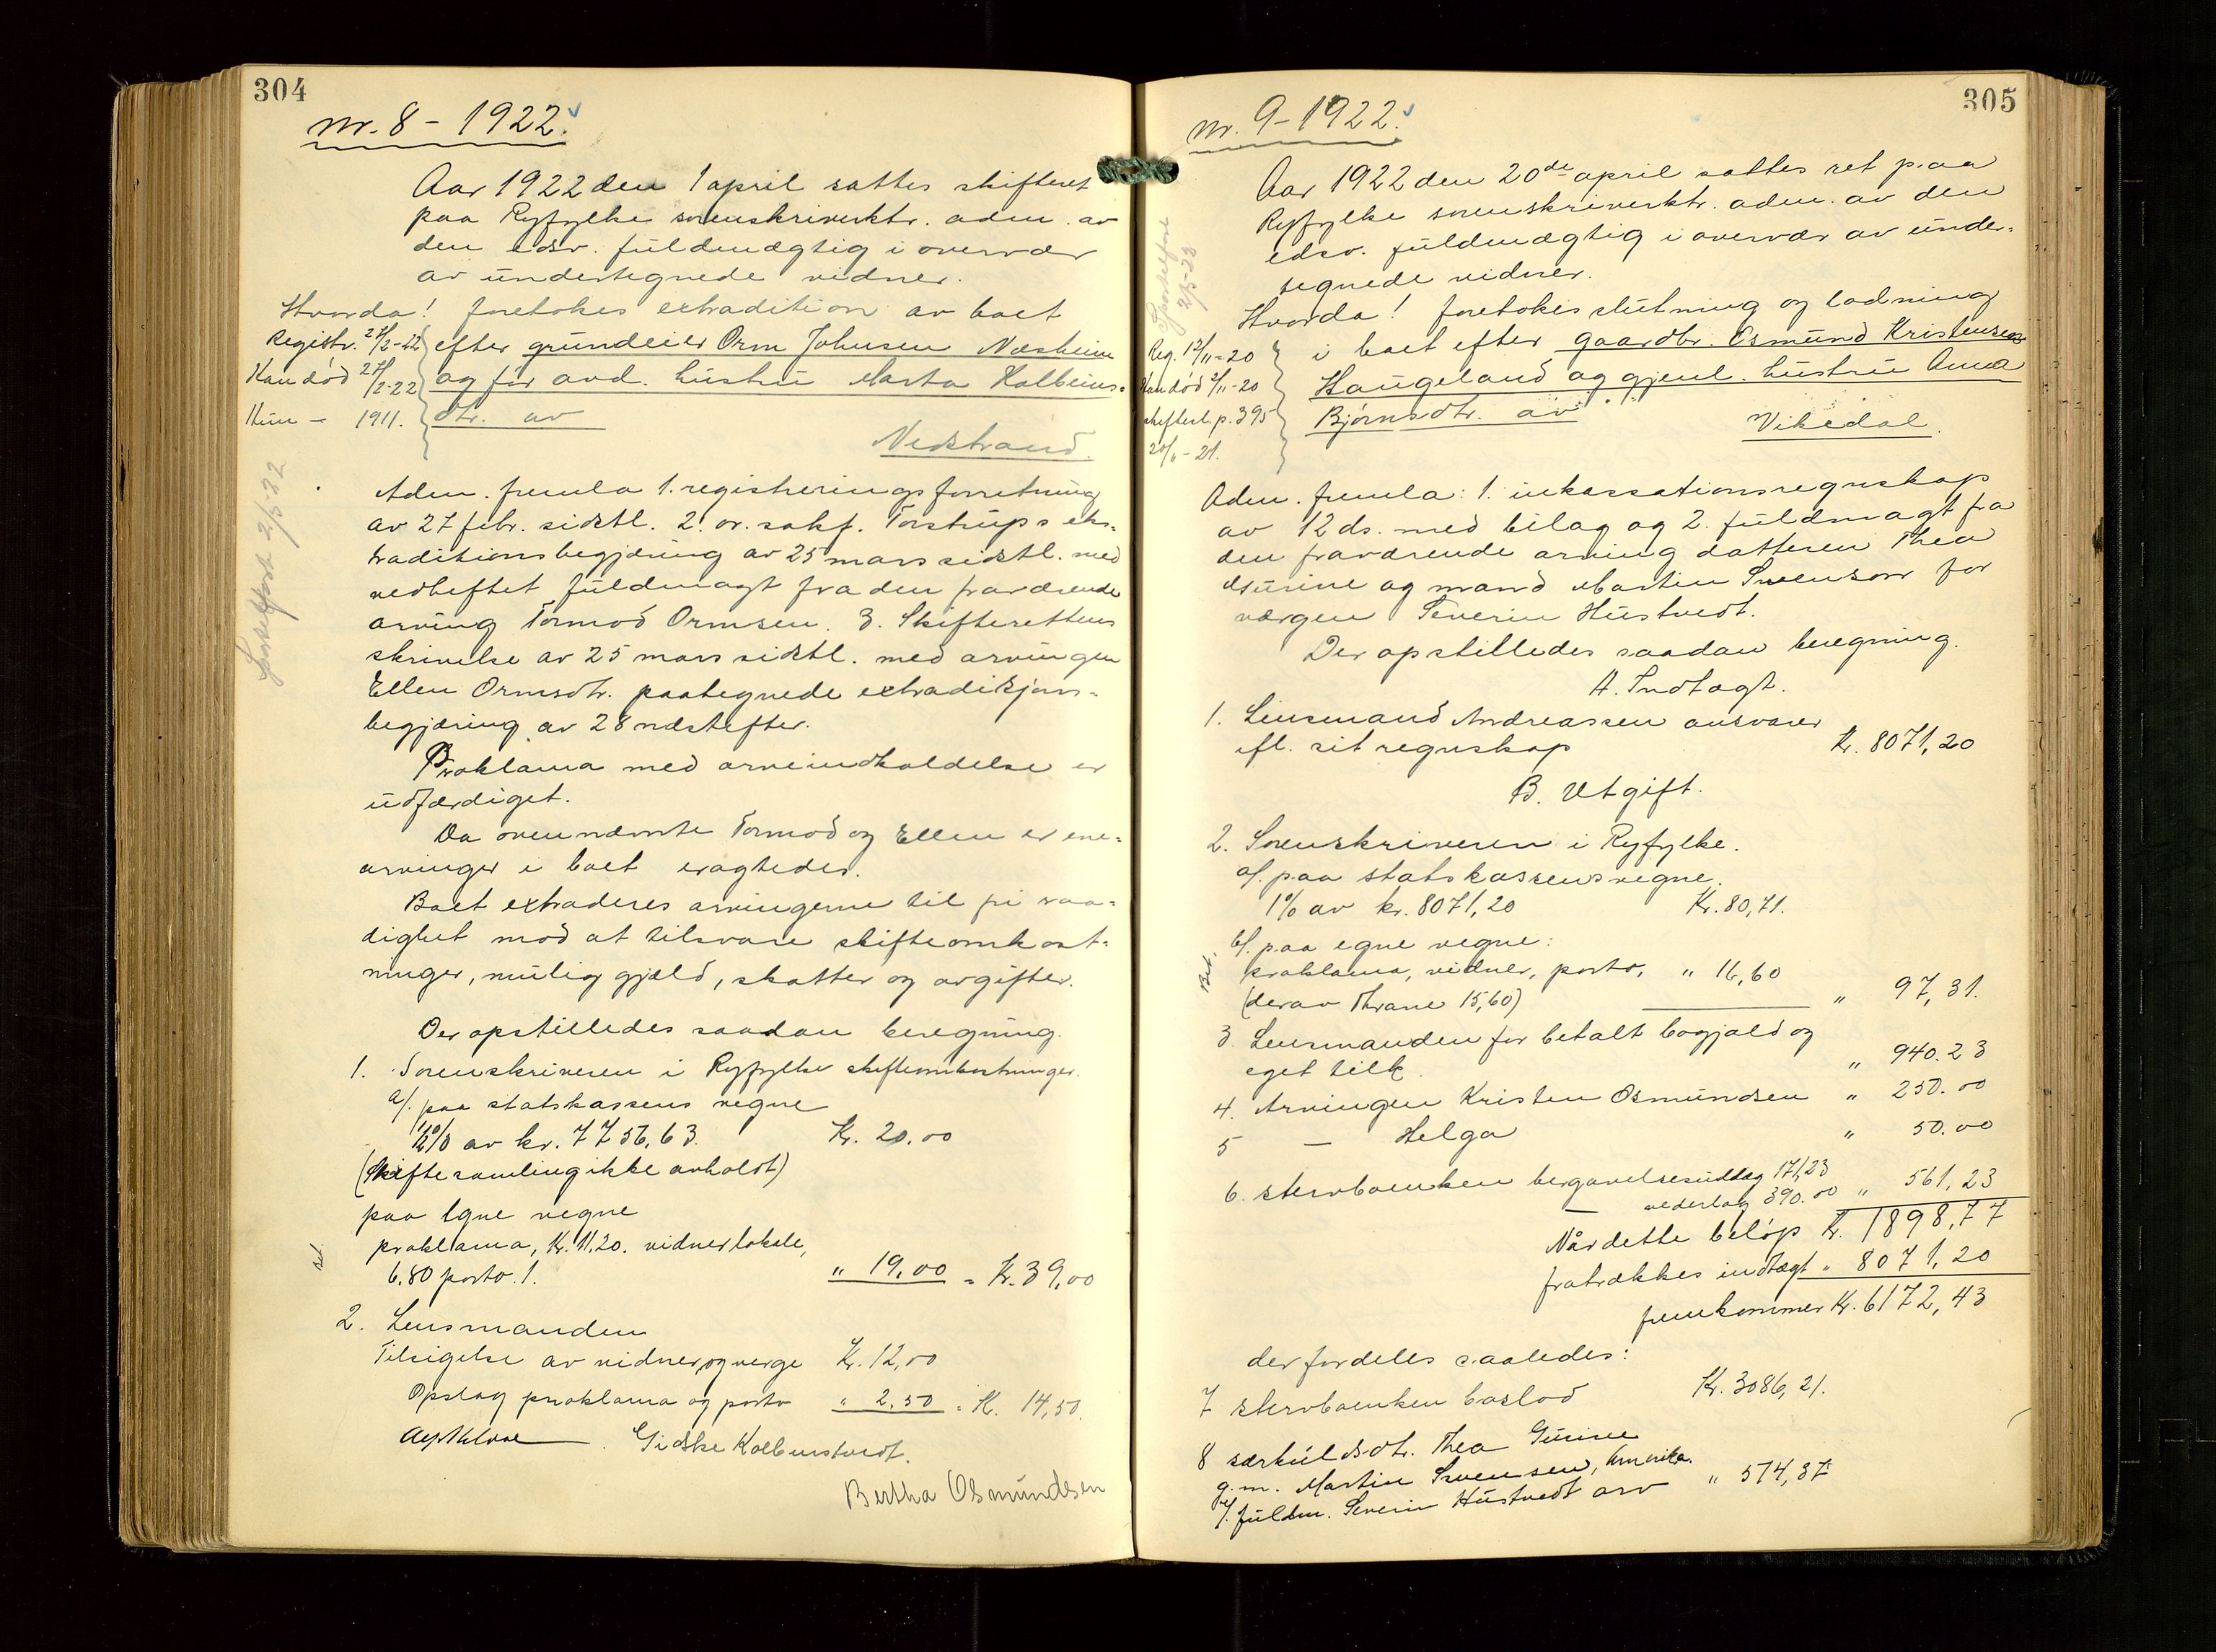 304
nr. 8 - 1922.
Aar 1922 den 1 april sattes skifteret
paa Ryfylke sorenskriverktr. adm. av
den edsv. fuldmægtig i overvær
av undertegnede vidner.
Hvorda! foretokes extradition av boet
Registr. 27/2-22 efter grundeier Orm Johnsen Næsheim
Han død 27/2-22 og før avd. hustru Marta Kolbeins-
Hun - 1911. dtr. av
Nedstrand.
Adm. fremla 1. registreringsforretning
av 27 febr. sidstl. 2. or. sakf. Torstrups eks-
traditionsbegjæring av 25 mars sidstl. med
vedheftet fuldmagt fra den fraværende
arving Tormod Ormsen. 3. Skifterettens
skrivelse av 25 mars sidstl. med arvingen
Ellen Ormsdtr. paategnede extradiksjons-
begjæring av 28 næstefter.
Proklama med arveindkaldelse er
udfærdiget.
Da ovennævnte Tormod og Ellen er ene-
arvinger i boet eragtedes.
Boet extraderes arvingerne til fri raa-
dighet mod at tilsvare skifteomkost-
ninger, mulig gjæld, skatter og avgifter.
Der opstilledes saadan beregning.
1. Sorenskriveren i Ryfylke skifteomkostninger.
a/. paa statskassens vegne
1/4 % av kr. 7756,63. Kr. 20.00
(Skiftesamling ikke avholdt)
paa egne vegne
proklama, Kr. 11,20. vidner lokale,
6.80 porto. 1. " 19,00 = Kr. 39,00
2. Lensmanden
Tilsigelse av vidner og verge Kr. 12,00
Opslag proklama og porto " 2,50 = Kr. 14,50.
Gidske Kolbenstvedt.
Bertha Osmundsen
Sportelført 2/5 22
305
nr. 9 - 1922.
Aar 1922 den 20de april sattes ret paa
Ryfylke sorenskriverktr. adm. av den
edsv. fuldmægtig i overvær av under-
tegnede vidner.
Hvorda! foretokes slutning og lodning
Reg. 12/11-20 i boet efter gaardbr. Osmund Kristensen
Han død 2/11-20 Haugeland og gjenl. hustru Anna
skifterl. p. 395 Bjørnsdtr. av
20/6-21. Vikedal.
Adm. fremla: 1. inkassationsregnskap
av 12 ds. med bilag og 2. fuldmagt fra
den fraværende arving datteren Thea
Gurine og mand Martin Swenson for
værgen Severin Hustvedt.
Der opstilledes saadan beregning.
A. Indtægt.
1. Lensmand Andreassen ansvarer
efl. sit regnskap Kr. 8071,20
B. Utgift.
2. Sorenskriveren i Ryfylke.
a/. paa statskassens vegne.
1% av kr. 8071,20 Kr. 80,71.
b/. paa egne vegne:
proklama, vidner, porto, " 16,60
(derav Thrane 15,60) " 97,31.
3. Lensmanden for betalt bogjæld og
eget tilk. " 940.23
4. Arvingen Kristen Osmundsen " 250.00
5 — Helga " 50.00
6. Stervboenken begravelsesuttag 171,23
— vederlag 390.00 " 561,23
Når dette beløp Kr. 1898,77
fratrækkes indtægt " 8071,20
fremkommer Kr. 6172,43
der fordeles saaledes:
7 Stervboenken boslod Kr. 3086,21.
8 særkuldsdtr. Thea Gurine
g.m. Martin Swensen, Amerika.
v/. fuldm. Severin Hustvedt arv " 574,37
Sportelført 2/5-22